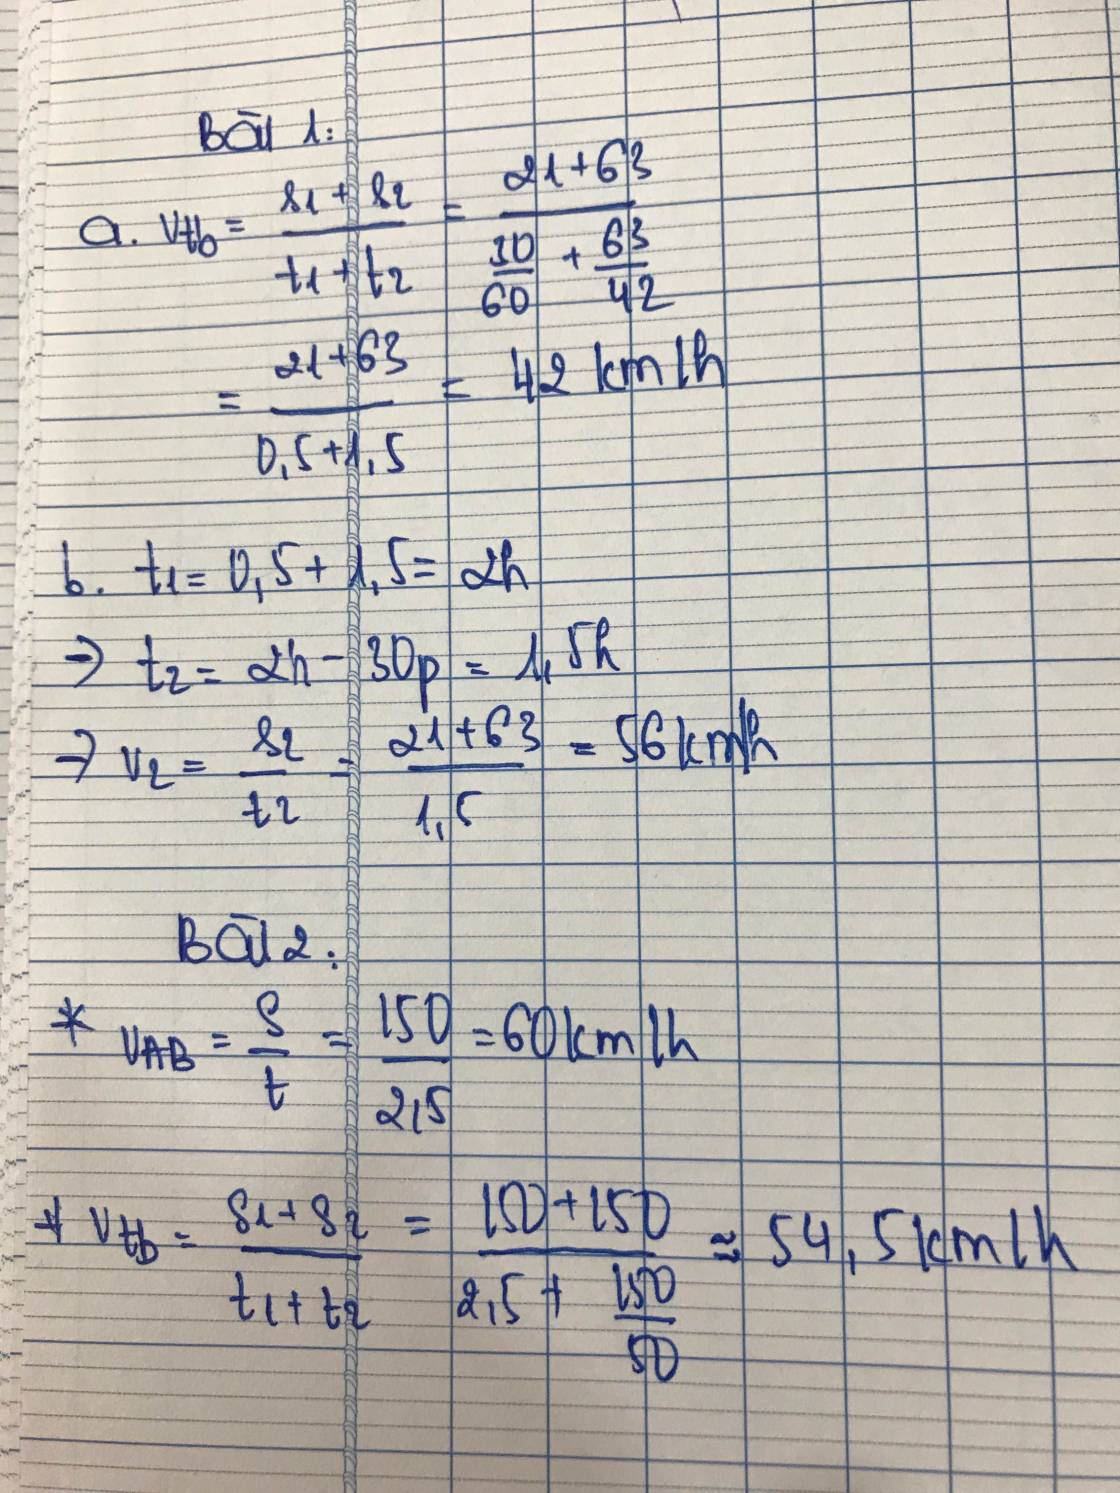 Bài 1:
a. Vtb = (s1 + s2)/(t1 + t2) = (21+63)/(30/60 + 63/42)
= (21+63)/(0,5+1,5) = 42 km/h
b. t1 = 0,5 + 1,5 = 2h
→ t2 = 2h - 30p = 1,5h
→ V2 = s2/t2 = (21+63)/1,5 = 56km/h
Bài 2:
* VAB = S/t = 150/2,5 = 60km/h
* Vtb = (s1+s2)/(t1+t2) = (150+150)/(2,5 + 150/50) ≈ 54,5km/h